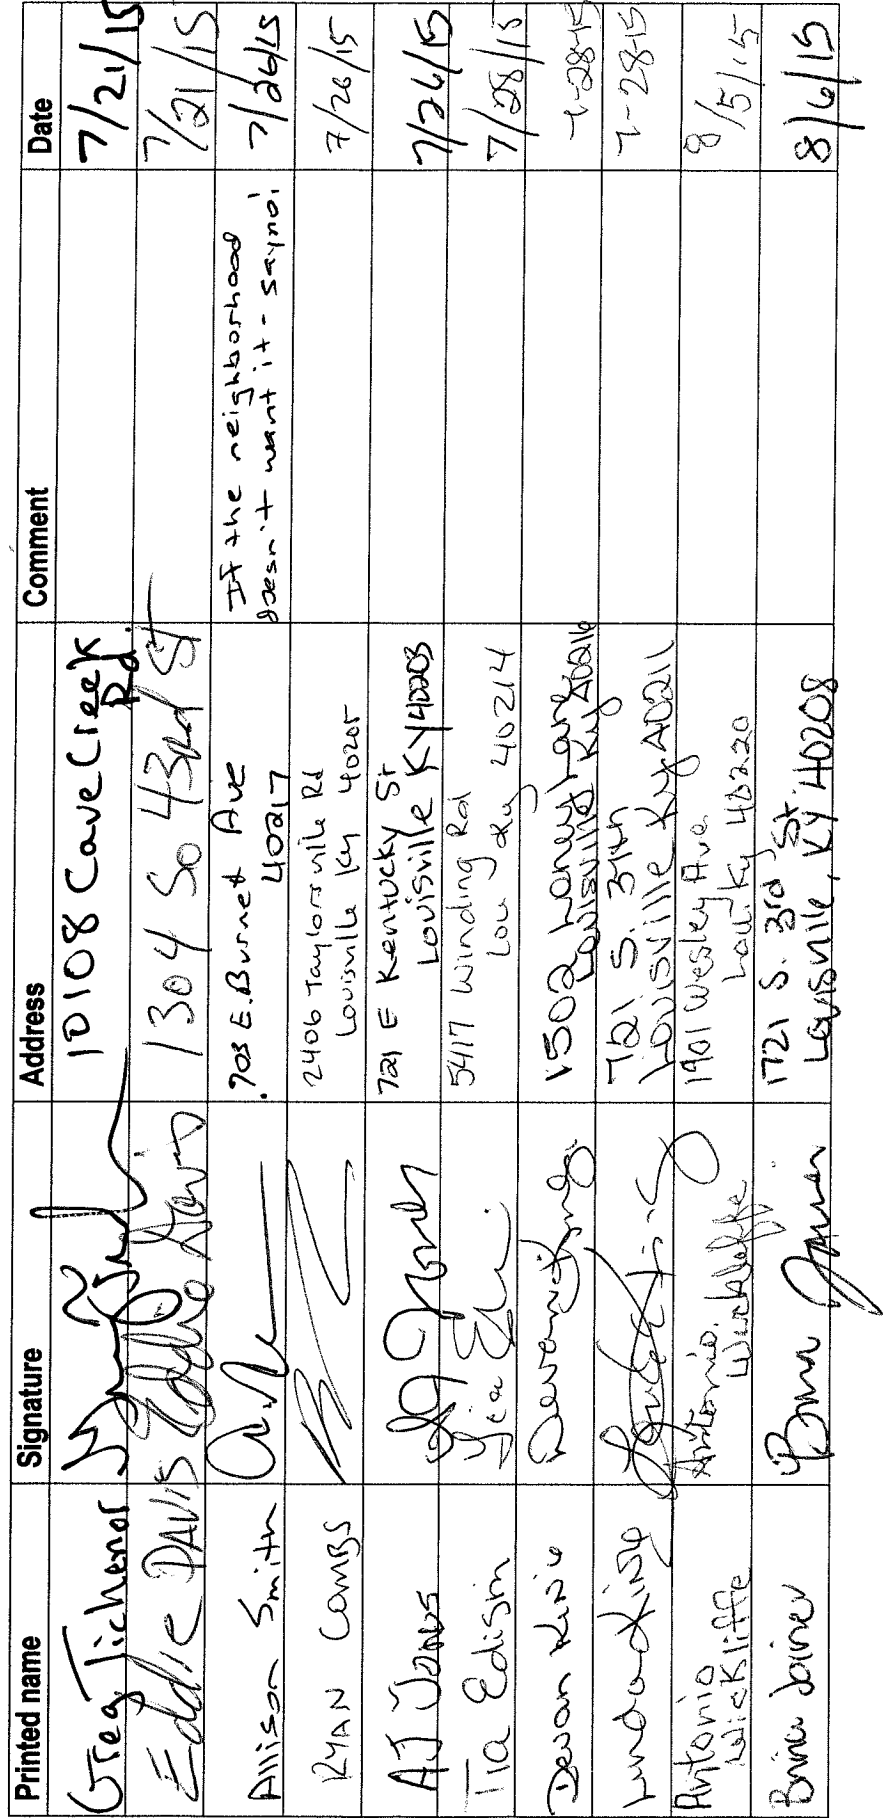 Printed name Signature Address Comment Date
Greg Tichenor 10108 Cave Creek Rd. 7/21/15
Eddie DAVIS Eddie Davis 1304 So 43rd St 7/21/15
Allison Smith 703 E. Burnet Ave 40217 If the neighborhood doesn't want it - say no! 7/26/15
RYAN COMBS 2406 Taylorsville Rd Louisville Ky 40205 7/26/15
AJ JONES AJ Jones 721 E Kentucky St Louisville KY 40203 7/26/15
Tia Edison 5417 Winding Rd Lou Ky 40214 7/28/15
Devan King Devan King 1502 Lane Louisville Ky 40216 7-28-15
Linda King Linda King 721 S. 37th Louisville Ky 40211 7-28-15
Antonio Wickliffe Antonio Wickliffe 1901 Wesley Ave. Lou. Ky 40220 8/5/15
Joiner Joiner 1721 S. 3rd St. Louisville, KY 40208 8/6/15